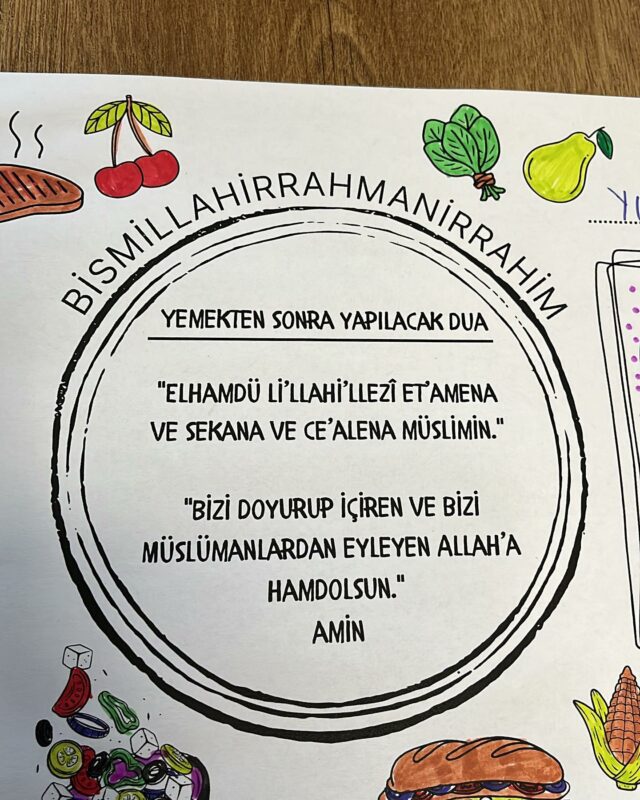 BİSMİLLAHİRRAHMANİRRAHİM
YEMEKTEN SONRA YAPILACAK DUA
"ELHAMDÜ Lİ'LLAHİ'LLEZÎ ET'AMENA
VE SEKANA VE CE'ALENA MÜSLİMİN."
"BİZİ DOYURUP İÇİREN VE BİZİ
MÜSLÜMANLARDAN EYLEYEN ALLAH'A
HAMDOLSUN."
AMİN